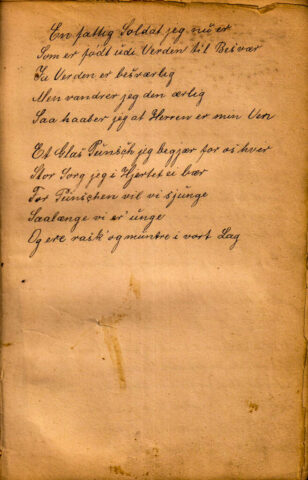 En fattig Soldat jeg nu er
Som er født udi Verden til Besvær
Ja Verden er besværlig
Men vandrer jeg den ærlig
Saa haaber jeg at Herren er min Ven
Et Glas Punsch jeg begjær for os hver
Stor Sorg jeg i Hjertet ei bær
For Punschen vil vi sjunge
Saalænge vi er unge
Og ere rask og muntre i vort Lag